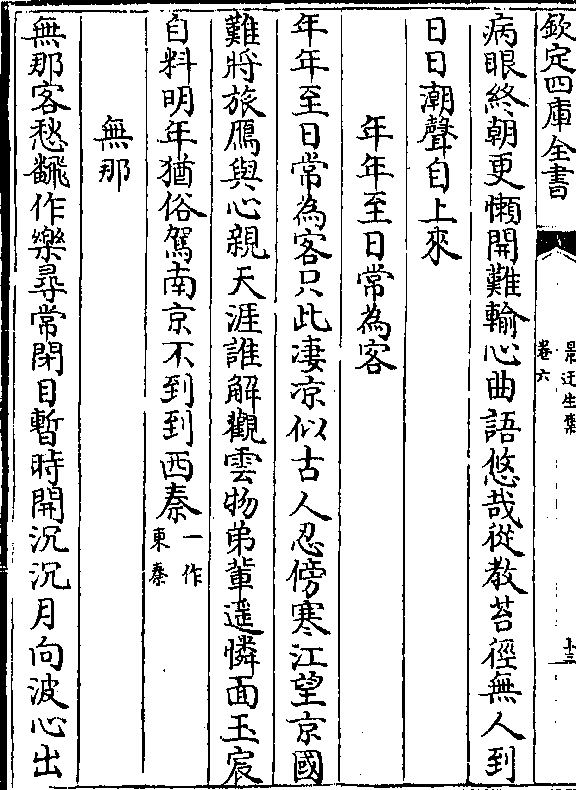 欽定四庫全書
景迂生集
卷六
十三
病眼終朝更懶開難輸心曲語悠哉從教苔徑無人到
日日潮聲自上來
年年至日常為客
年年至日常為客只此凄凉似古人忍傍寒江望京國
難將旅鴈與心親天涯誰解觀雲物弟輩遥憐面玉宸
自料明年猶俗駕南京不到到西秦一作東秦
無那
無那客愁飜作樂尋常閉目暫時開沉沉月向波心出